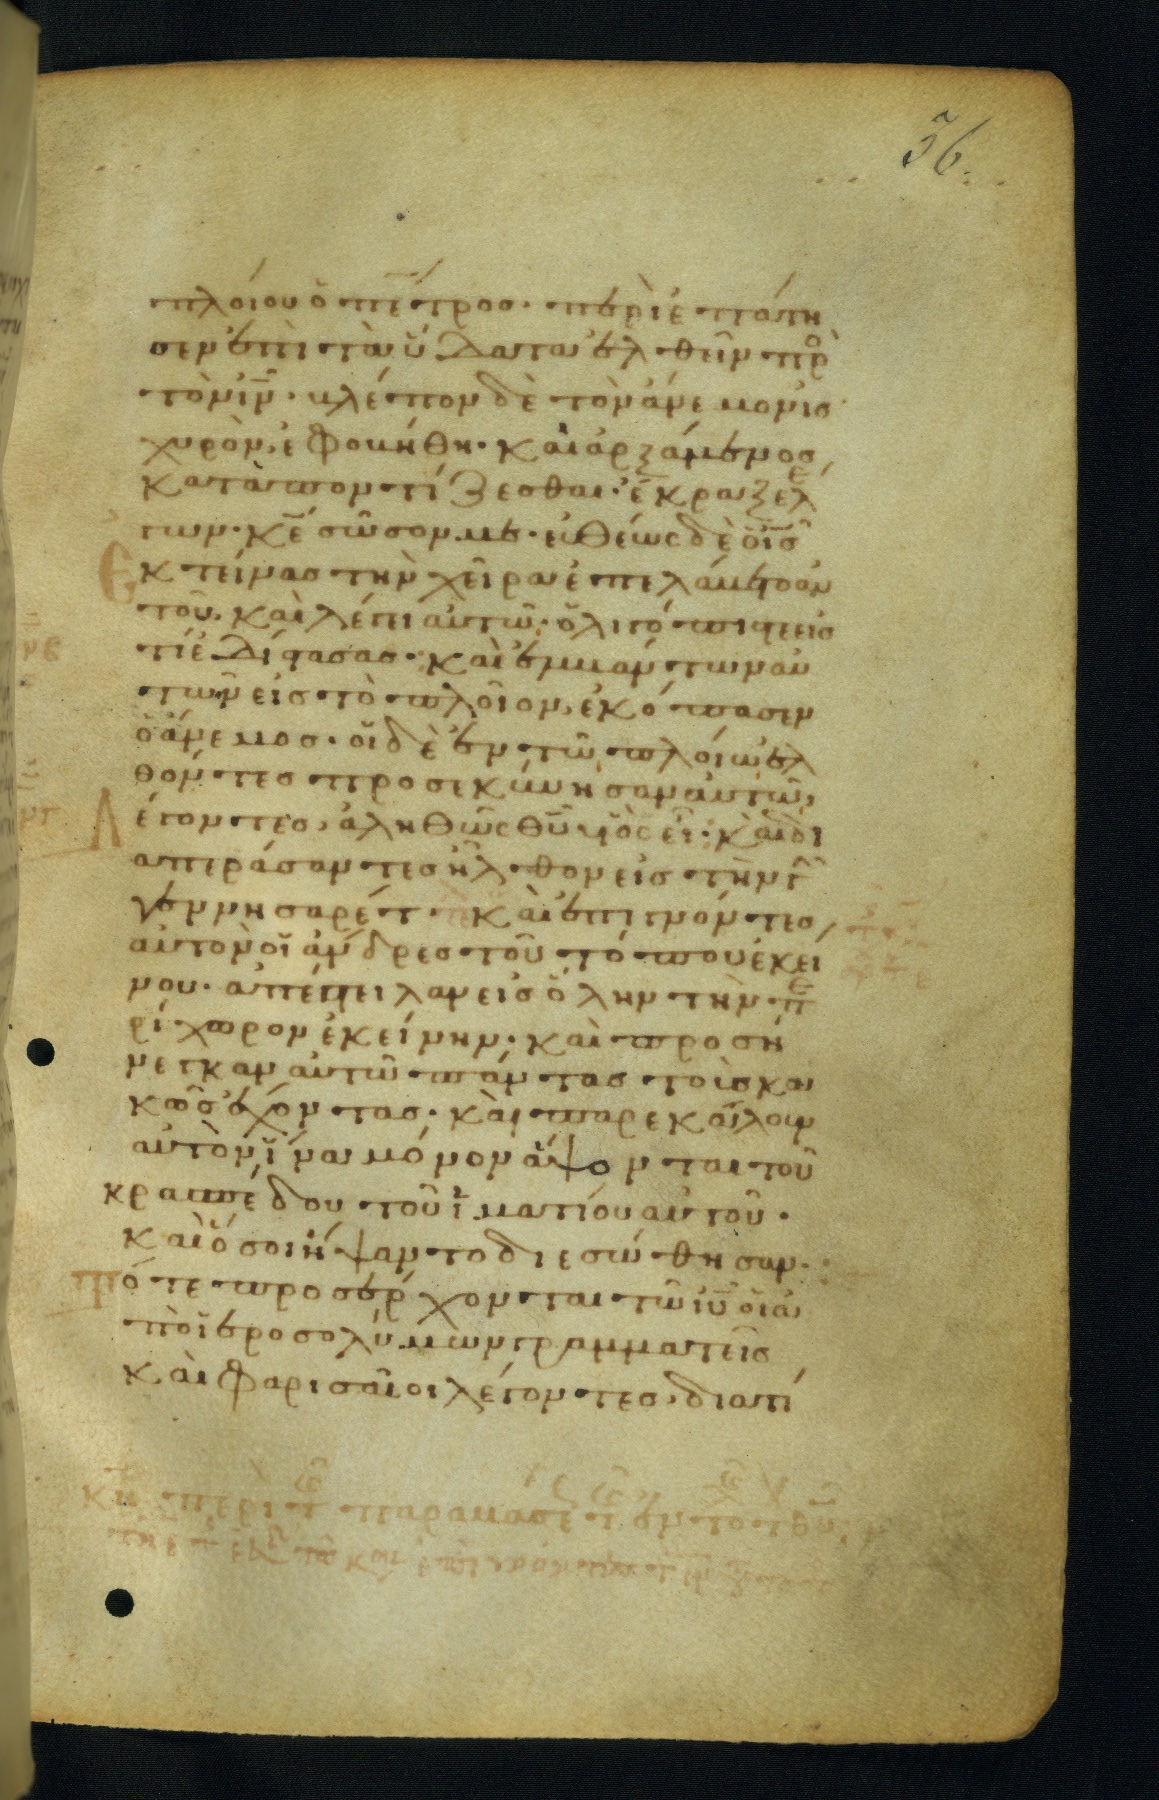 36
πλοίου ὁ πέτρος· περιεπάτη
σεν ἐπὶ τὰ ὕδατα ἐλθεῖν πρ
τὸν ιν· βλέπων δὲ τὸν ἄνεμον ἰσ
χυρὸν, ἐφοβήθη· καὶ ἀρξάμενος
καταποντίζεσθαι· ἔκραξε λέ
γων· κε σῶσον με· εὐθέως δὲ ὁ ις
ἐκτείνας τὴν χεῖρα ἐπελάβετο αὐ
τοῦ, καὶ λέγει αὐτῶ· ὀλιγόπιστε εἰς
τί ἐδίστασας· καὶ ἐμβάντων αὐ
τῶν εἰς τὸ πλοῖον, ἐκόπασεν
ὁ ἄνεμος· οἱ δὲ ἐν τῶ πλοίω ἐλ
θόντες προσεκύνησαν αὐτῶ,
λέγοντες, ἀληθῶς θυ υἱὸς εἶ· καὶ δι
απεράσαντες ἦλθον εἰς τὴν γῆ
γεννησαρέτ· καὶ ἐπιγνόντες
αὐτὸν οἱ ἄνδρες τοῦ τόπου ἐκεί
νου· ἀπέστειλαν εἰς ὅλην τὴν πε
ρίχωρον ἐκείνην· καὶ προσή
νεγκαν αὐτῶ πάντας τοὺς κα
κῶς ἔχοντας· καὶ παρεκάλουν
αὐτὸν ἵνα μόνον ἅψονται τοῦ
κρασπέδου τοῦ ἱματίου αὐτοῦ·
καὶ ὅσοι ἥψαντο διεσώθησαν·
τότε προσέρχονται τῶ ιυ οἱ ἀ
πὸ ἱεροσολύμων γραμματεῖς
καὶ φαρισαῖοι λέγοντες, διατί